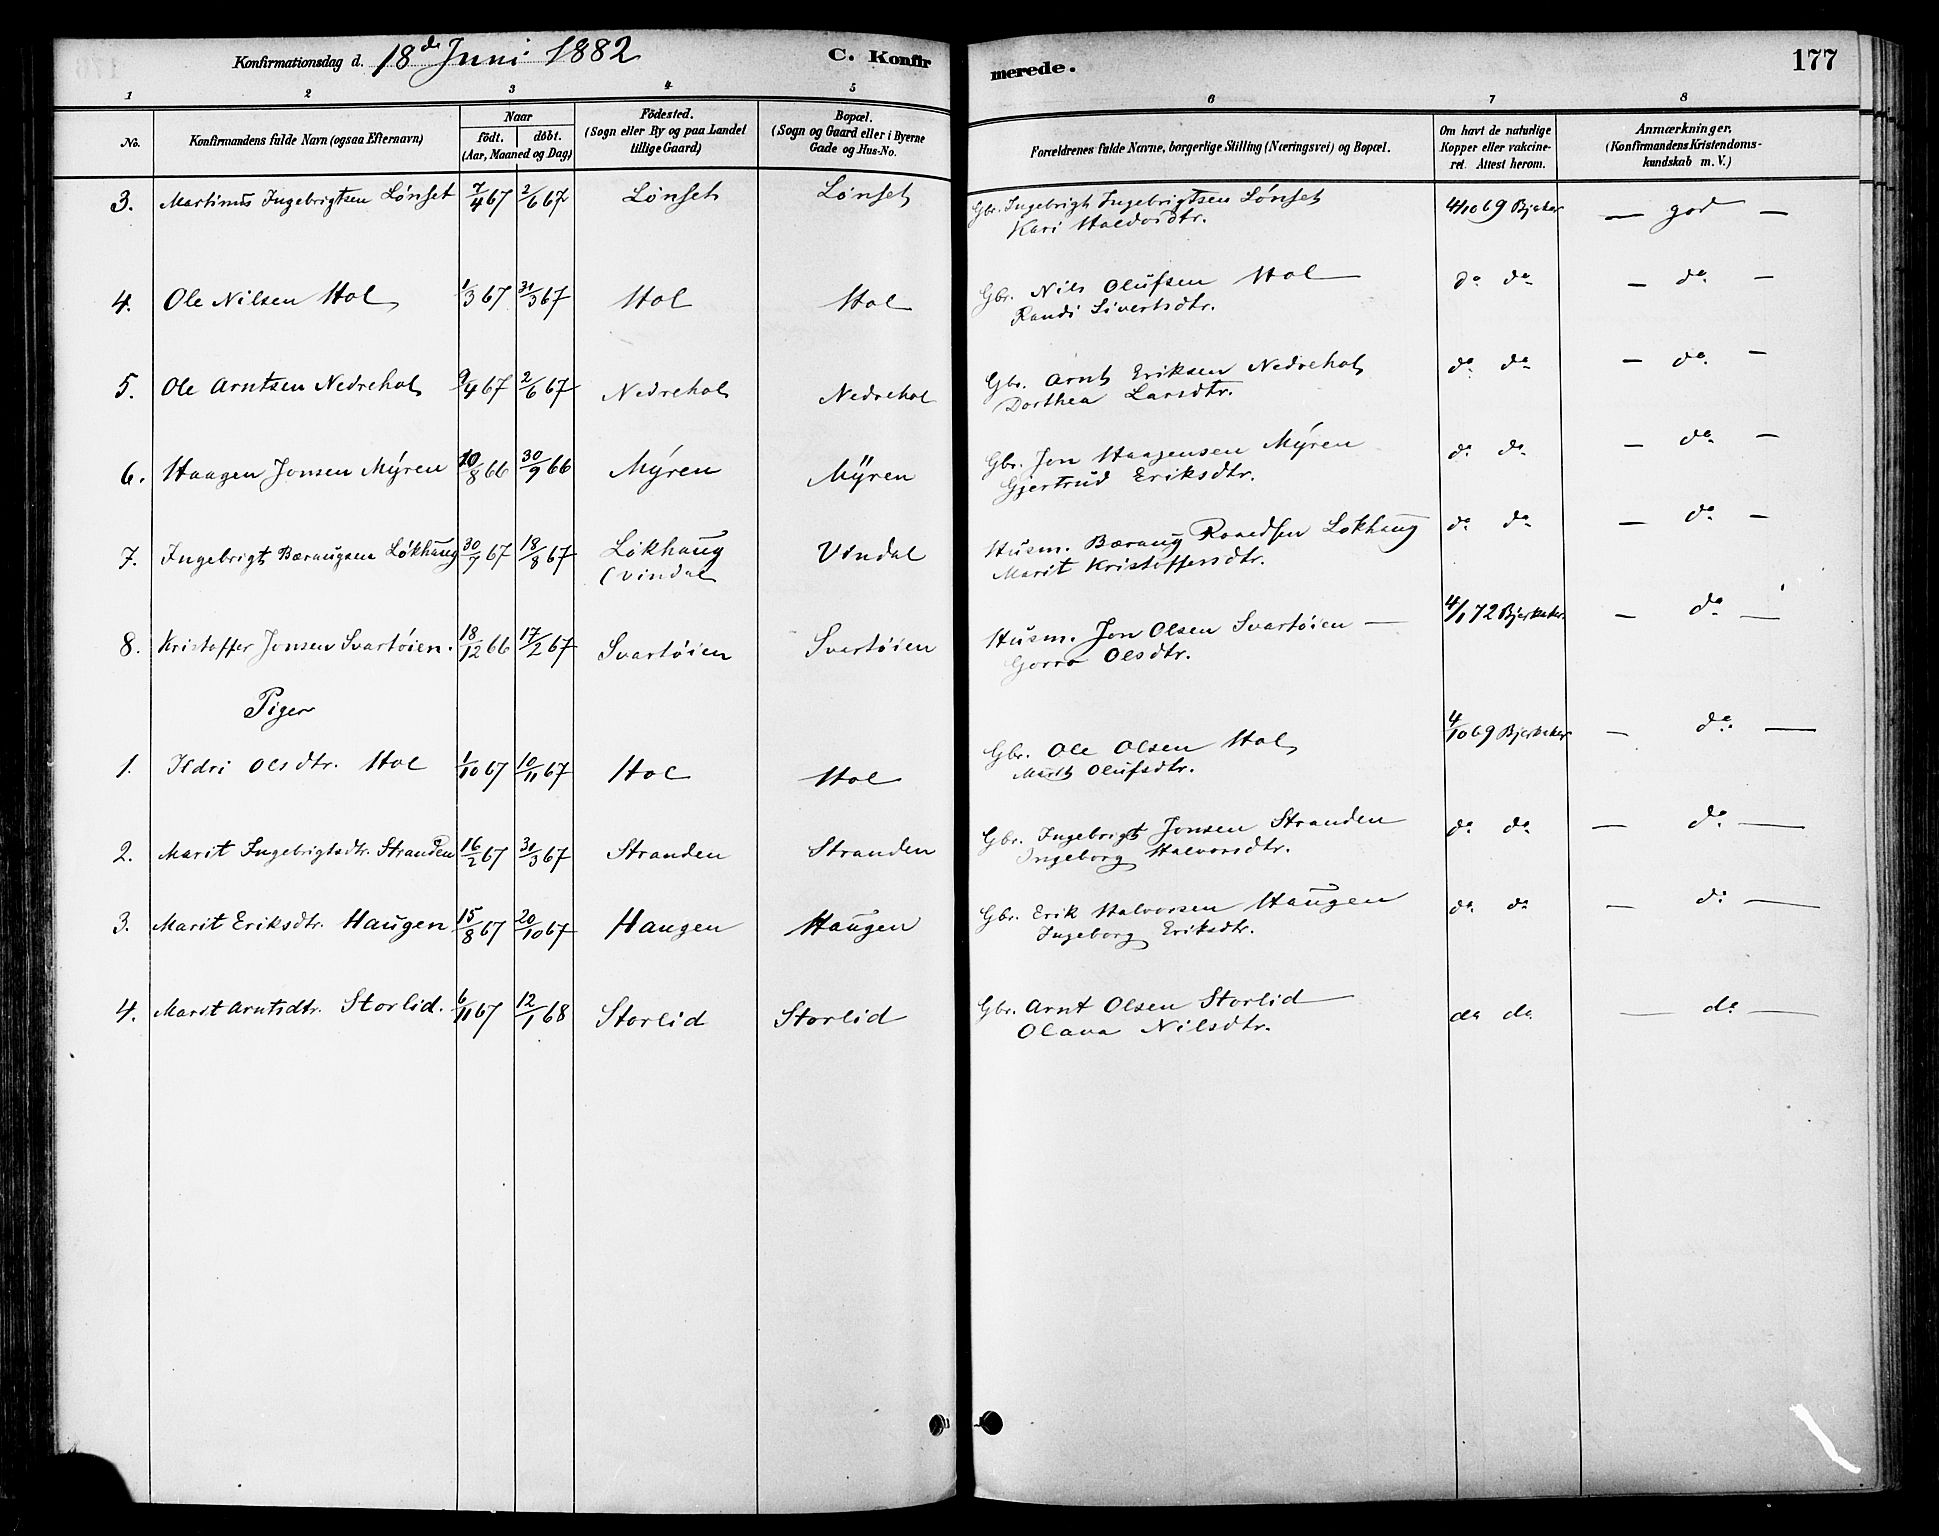 Konfirmationsdag d. 18de Juni 1882 C. Konfirmerede. 177
1 2 3 4 5 6 7 8
No. Konfirmandens fulde Navn (ogsaa Efternavn) Naar födt. döbt. (Aar, Maaned og Dag) Födested. (Sogn eller By og paa Landet tillige Gaard) Bopæl. (Sogn og Gaard eller i Byerne Gade og Hus-No. Forældrenes fulde Navne, borgerlige Stilling (Næringsvei) og Bopæl. Om havt de naturlige Kopper eller vakcineret. Attest herom. Anmærkninger. (Konfirmandens Kristendomskundskab m. V.)
3. Martinus Ingebrigtsen Lønset 7/4 67 2/6 67 Lønset Lønset Gbr. Ingebrigt Ingebrigtsen Lønset 4/10 69 Bjerker — god —
Kari Haldordtr.
4. Ole Nilsen Hol 1/3 67 31/3 67 Hol Hol Gbr. Nils Olufsen Hol — do do — do —
Randi Sivertsdtr.
5. Ole Arntsen Nedrehol 9/4 67 2/6 67 Nedrehol Nedrehol Gbr. Arnt Eriksen Nedrehol do do — do —
Dorthea Larsdtr.
6. Haagen Jonsen Mýren 10/8 66 30/9 66 Mýren Mÿren Gbr. Jon Haagensen Mýren do do — do —
Gjertrud Eriksdtr.
7. Ingebrigt Bæraugsen Løkhaug 30/7 67 18/8 67 Løkhaug Vindal Husm. Bæraug Roaldsen Løkhaug do do — do —
(Vindal
Marit Kristoffersdtr.
8. Kristoffer Jonsen Svartøien. 18/12 66 17/2 67 Svartøien Svartøien Husm. Jon Olsen Svartøien — 4/1 72 Bjerkeker. — do —
Gorro Olsdtr.
Piger
1. Ildri Olsdtr. Hol 1/10 67 10/11 67 Hol Hol Gbr. Ole Olsen Hol 4/10 69 Bjerkeker — do —
Marit Olufsdtr.
2. Marit Ingebrigtsdtr. Stranden 16/2 67 31/3 67 Stranden Stranden Gbr. Ingebrigt Jonsen Stranden do do — do —
Ingeborg Halvorsdtr.
3. Marit Eriksdtr. Haugen 15/8 67 20/10 67 Haugen Haugen Gbr. Erik Halvorsen Haugen do do — do —
Ingeborg Eriksdtr.
4. Marit Arntsdtr. Storlid. 6/11 67 12/1 68 Storlid Storlid Gbr. Arnt Olsen Storlid do do — do —
Olava Nilsdtr.